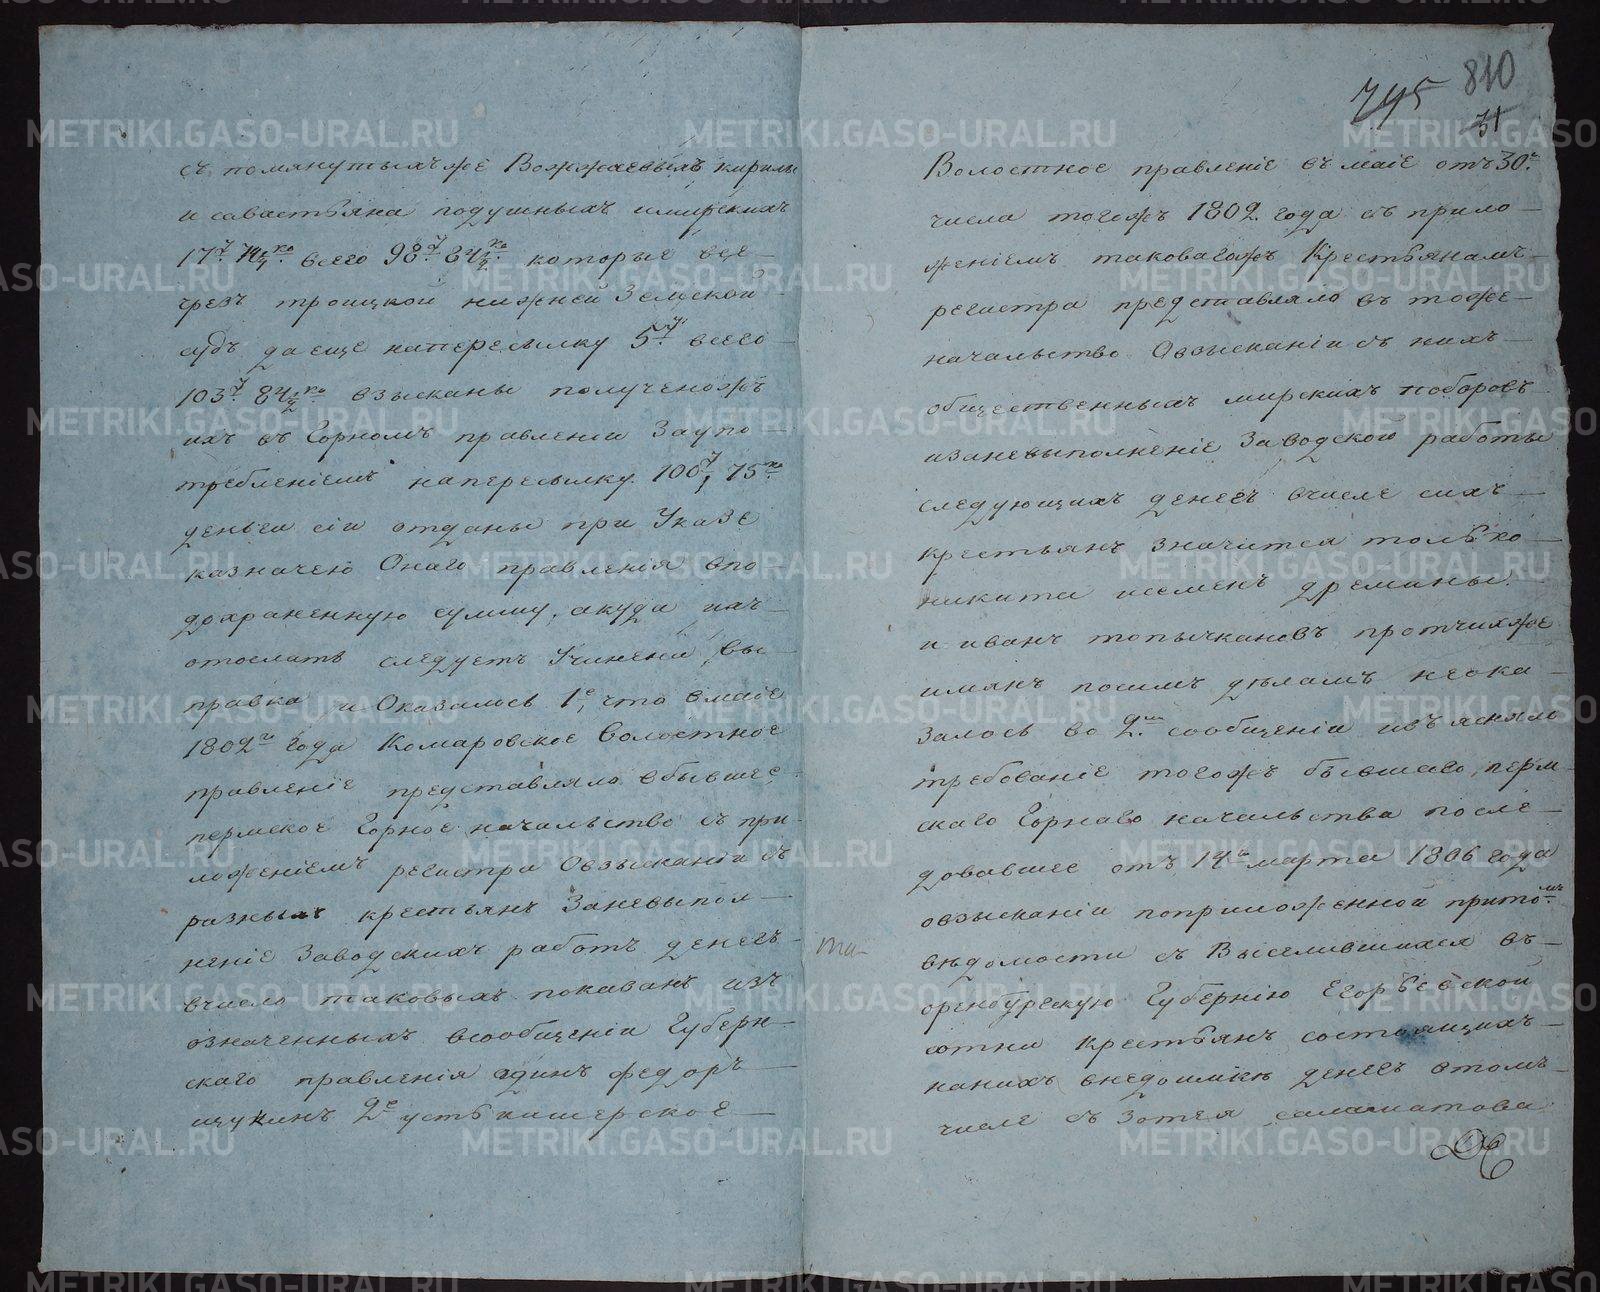 съ помянутыхъ же Вожжаевыхъ кирилы
и савастьяна подушныхъ имирскихъ
всего 98 84½ ко которые все
чрезъ троицкой нижней Земской
судъ да еще напересылку 5 всего
103 84½ ко взысканы полученожъ
ихъ въ Горномъ правлении Заупо
требленіемъ напересылку 100 75 ко
деньги сіи отданы при Указе
казначею Онаго правленія впо
дохраненную сумму, акуда ихъ
отослать следуетъ Учинена вы
правка и Оказалось 1е, что вмаіе
1802го года Комаровское Волостное
правленіе представляло вбывшее
пермское Горное начальство съ при
ложеніемъ регистра Овзысканіи съ
разныхъ крестьянъ Заневыпол
неніе Заводскихъ работъ денегъ
вчисле таковыхъ показанъ изъ
означенныхъ всообщеніи Губерн
скаго правленія один федоръ
щукинъ 2е устькишерское
745 810
31
Волостное правленіе въ маіе отъ 30го
числа тогожъ 1802 года съ прило
женіемъ таковагожъ Крестьянамъ
регистра представляло въ тоже
начальство Овзысканіи съ нихъ
общественныхъ мирскихъ поборовъ
изаневыполненіе Заводской работы
следующихъ денегъ вчисле сихъ
крестьянъ значится только
никита исеменъ дремины
и иванъ топычкановъ протчихже
имянъ посимъ деламъ неока
залось во 2мъ сообщеніи изъясняло
требованіе тогожъ бывшаго перм
скаго Горнаго начальства после
довавшее отъ 14го марта 1806 года
овзысканіи поприложенной притомъ
ведомости съ Выселившихся въ
оренбурскую Губернію Егорьевской
сотни крестьянъ состоящихъ
нанихъ внедоимке денегъ втомъ
числе съ Зотея саламатова